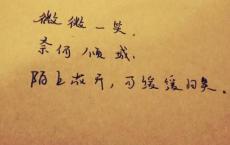 微微一笑.
奈何倾城.
陌上花开,可缓缓归矣.